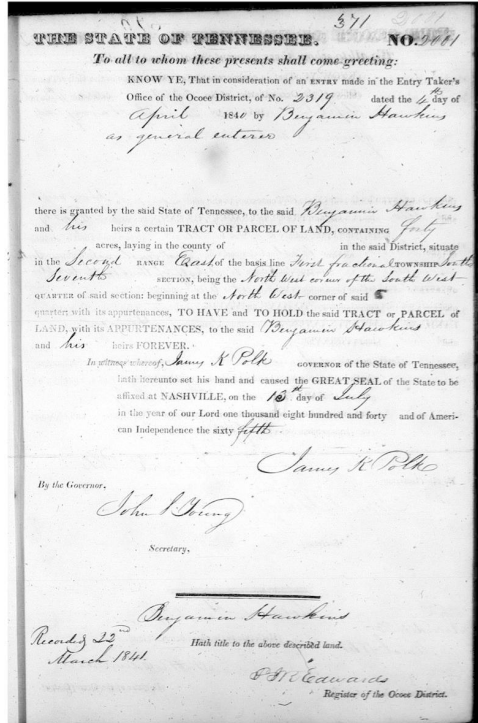 371
THE STATE OF TENNESSEE. NO. 3001
To all to whom these presents shall come greeting:
KNOW YE, That in consideration of an ENTRY made in the Entry Taker's
Office of the Ocoee District, of No. 2319 dated the 4th day of
April 1840 by Benjamin Hawkins
as general enterer
there is granted by the said State of Tennessee, to the said Benjamin Hawkins
and his heirs a certain TRACT OR PARCEL OF LAND, CONTAINING forty
acres, laying in the county of in the said District, situate
in the Second RANGE East of the basis line First fractional TOWNSHIP South
Seventh SECTION, being the North West corner of the South West
QUARTER of said section: beginning at the North West corner of said
quarter: with its appurtenances, TO HAVE and TO HOLD the said TRACT or PARCEL of
LAND, with its APPURTENANCES, to the said Benjamin Hawkins
and his heirs FOREVER.
In witness whereof, James K Polk GOVERNOR of the State of Tennessee,
hath hereunto set his hand and caused the GREAT SEAL of the State to be
affixed at NASHVILLE, on the 13th day of July
in the year of our Lord one thousand eight hundred and forty and of Ameri-
can Independence the sixty fifth.
James K Polk
By the Governor,
John S Young
Secretary.
Benjamin Hawkins
Recorded 22nd Hath title to the above described land.
March 1841.
Edwards
Register of the Ocoee District.